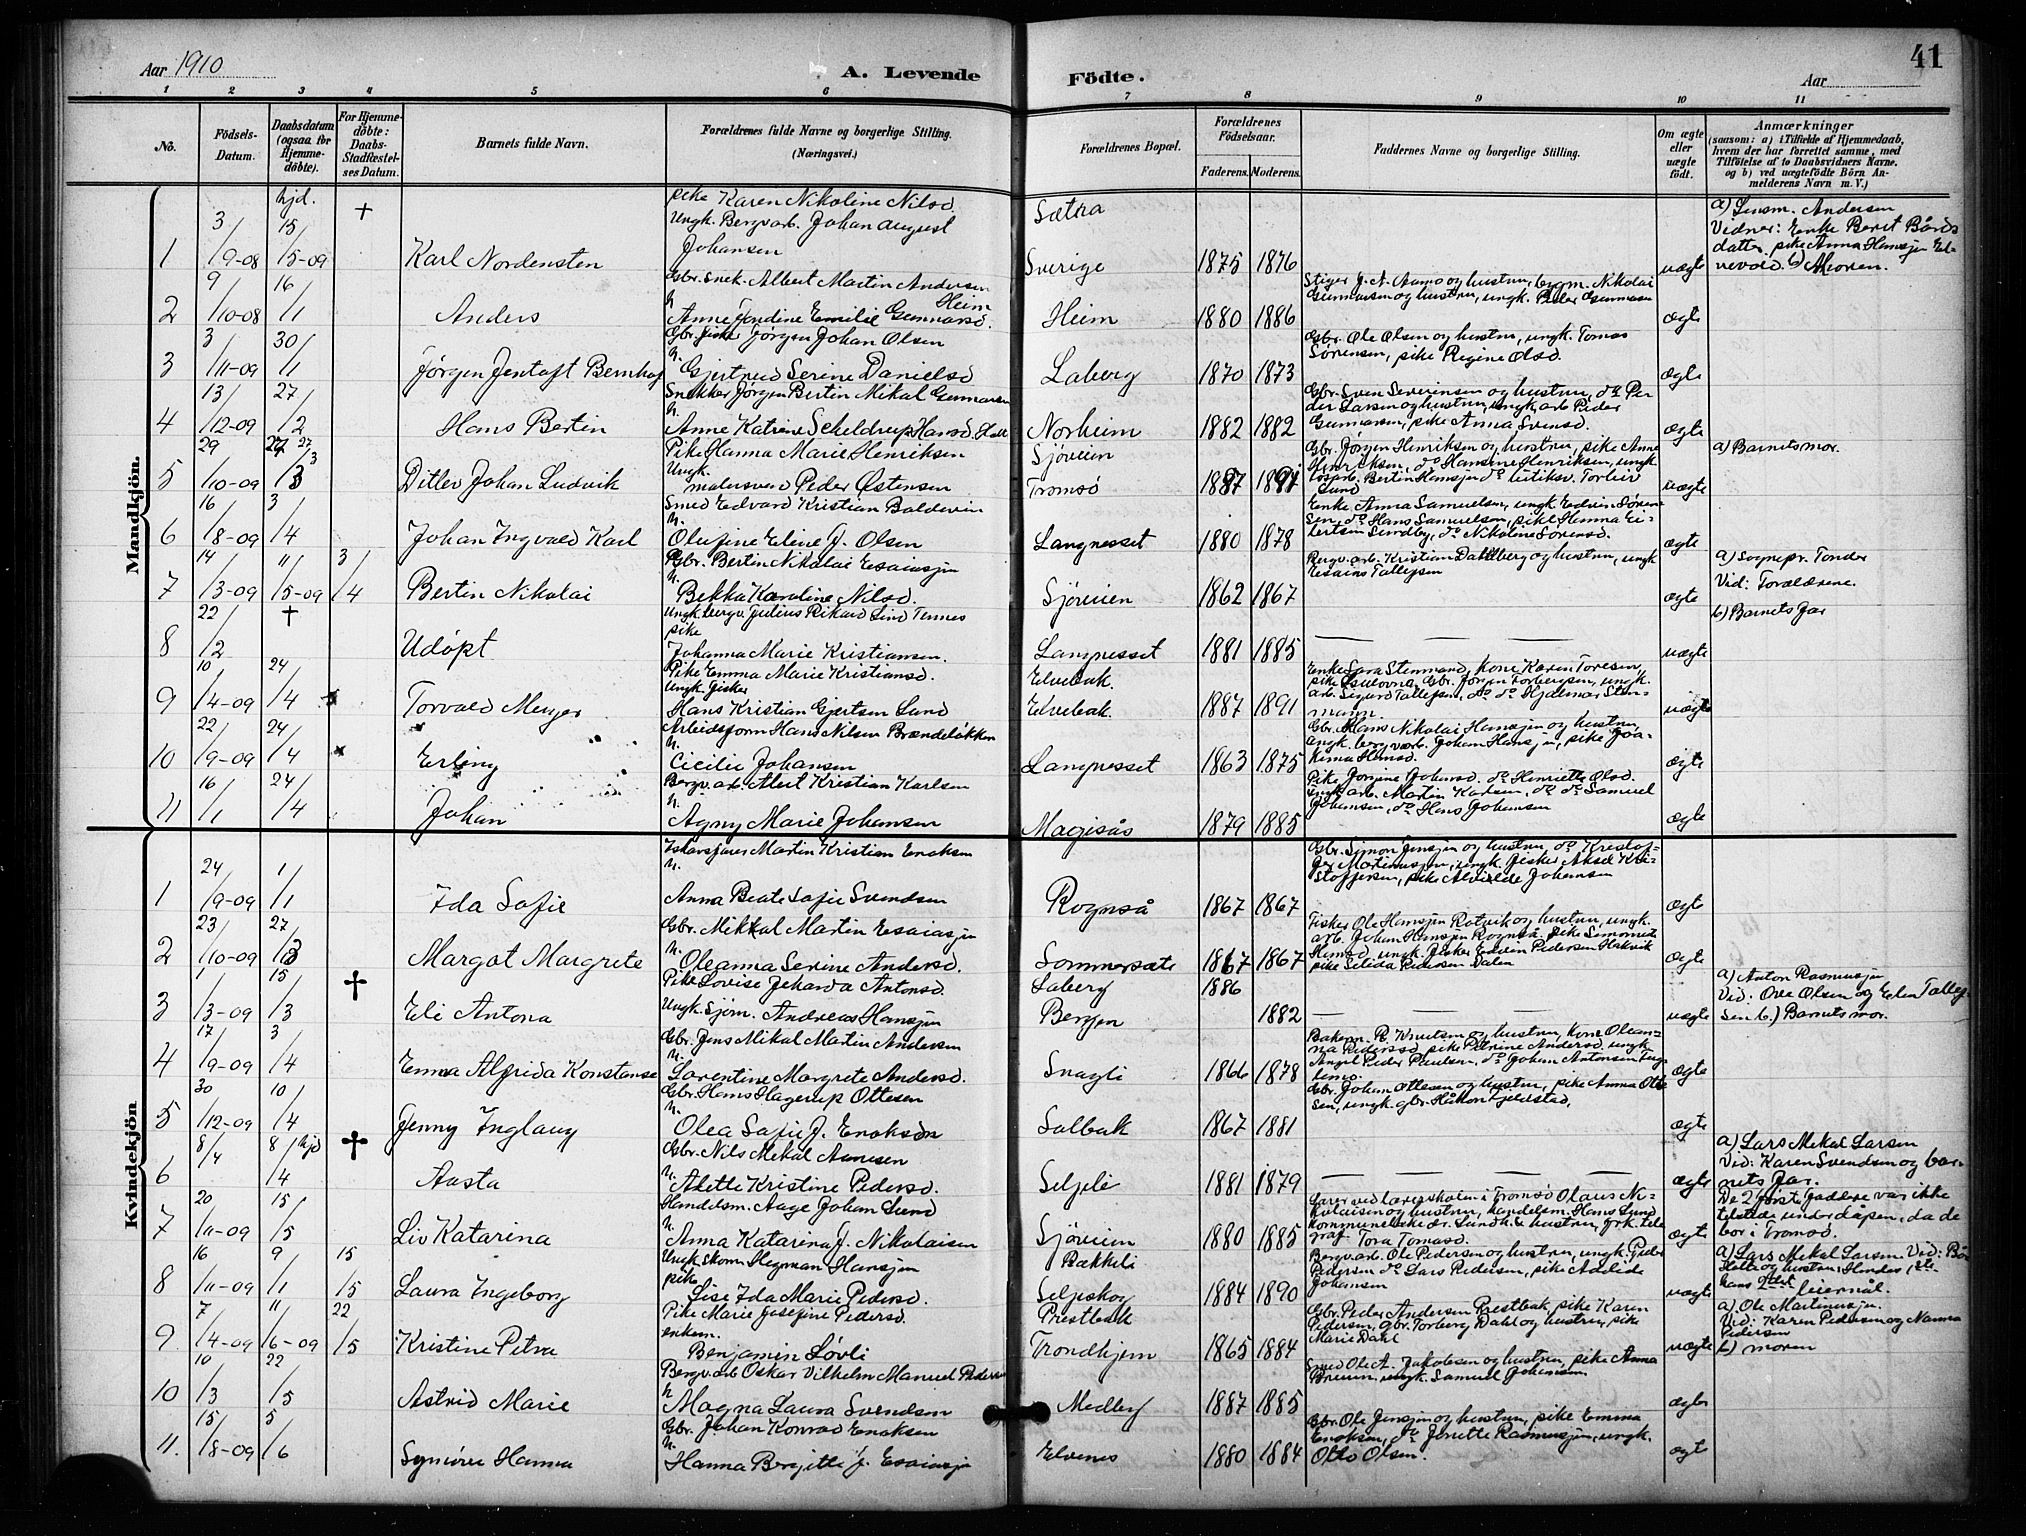 Aar 1910
A. Levende Födte.
Aar
41
1 2 3 4 5 6 7 8 9 10 11
No.
Födsels-Datum.
Daabsdatum (ogsaa for Hjemmedöbte).
For Hjemmedöbte: Daabs-Stadfæstelses Datum.
Barnets fulde Navn.
Forældrenes fulde Navne og borgerlige Stilling. (Næringsvei.)
Forældrenes Bopæl.
Forældrenes Födselsaar.
Faderens. Moderens.
Faddernes Navne og borgerlige Stilling.
Om ægte eller uægte födt.
Anmærkninger
(saasom: a) i Tilfælde af Hjemmedaab, hvem der har forrettet samme, med Tilföielse af to Daabsvidners Navne. og b) ved uægtefödte Börn Anmelderens Navn m. V.)
Mandkjön.
1 3/9-08 hjd. 15/5-09 † Karl Nordensten
pike Karen Nikoline Nilsd.
Ungk. Bergvarb. Johan August Johansen
Sætra
Sverige 1875 1876 uægte
a) Lensm. Andersen
Vidner: Enke Berit Bårds
datter, pike Anna Hansjen El-
vevold. b) Moren.
2 9/10-08 16/1 Anders
Gbr. snek. Albert Martin Andersen Heim
h. Anne Jendine Emilie Gunnarsd.
Heim 1880 1886
Stiger J. A. Aamo og hustru, bygm. Nikolai
Gunnarsen og hustru, ungk. Peder Gunnarsen
ægte
3 3/11-09 30/1 Jørgen Jentoft Bernhof
Gbr. fisker Jørgen Johan Olsen
h. Gjertrud Serine Danielsd
Laberg 1870 1873
Gbr. Ole Olsen og hustru, ungk. Tomas
Sørensen, pike Regine Olsd.
ægte
4 13/12-09 27/2 Hans Bertin
Snekker Jørgen Bertin Mikal Gunnarsen
h. Anne Katrine Scheldrup Hansd.
Norheim 1882 1882
Gbr. Sven Severinsen og hustru, do Pe-
der Larsen og hustru, ungk. arb. Peder
Gunnarsen, pike Anna Svensd.
ægte
5 29/10-09 27/3 Ditlev Johan Ludvik
Pike Hanna Marie Henriksen
Ungk. malersvend Peder Østensen
Sjøveien
Tromsø 1887 1891
Gbr. Jørgen Henriksen og hustru, pike Anne
Henriksen, do Hansine Henriksen, ungk.
uægte
a) Barnets mor.
6 16/8-09 3/4 Johan Ingvald Karl
Smed Edvard Kristian Baldevin
h. Olufine Eline J. Olsen
Langnesset 1880 1878
Enke Anna Samuelsen, ungk. Edvin Søren-
sen, do Hans Samuelsen, pike Hanna Ei-
lertsen Sundby, do Nikoline Sørensd.
ægte
7 14/3-09 11/5-09 3/4 Bertin Nikolai
Gbr. Bertin Nikolai Esaiasjen
h. Bekka Karoline Nilsd.
Sjøveien 1862 1867
Bergv. arb. Kristian Dahlberg og hustru, ungk
Esaias Tallejsen
ægte
a) Sognepr. Tonder
Vid: Forældrene.
8 22/2 † Udöpt
Ungk. bergv. Julius Rikard Lind Tennes
pike Johanna Marie Kristiansen.
Langnesset 1881 1885 uægte
b) Barnets far
9 10/4-09 24/4 Torvald Meyer
Pike Emma Marie Kristiansd.
Ungk. fisker Hans Kristian Gjertsen Lund
Elvebak.
Elvebak. 1887 1891
Enke Sara Stenmand, kone Karen Toresen,
uægte
10 22/9-09 24/4 Erling
Arbeidsform. Hans Nilsen Brændeløkken
h. Cicilie Johansen
Langnesset 1863 1875
Gbr. Hans Nikolai Hansjen og hustru,
ungk. bergv. arb. Johan Hansjen, pike Joa-
kima Hansd.
ægte
11 16/1 24/4 Johan
Bergv. arb. Albert Kristian Karlsen
h. Agny Marie Johansen
Magisås 1879 1885
Pike Jørgine Johansd. do Henriette Olsd.
ungk. arb. Martin Karlsen, do do Samuel
Johansen, do Hans Johansen
ægte
Kvindekjön
1 24/9-09 1/1 Ida Sofie
Martin Kristian Enoksen
h. Anna Beate Sofie Svendsen
Rognså 1867 1867
Gbr. Simon Jensjen og hustru, do Kristof-
fer Martinusjen, ungk. fisker Aksel Kri-
stoffersen, pike Alvilde Johansen
ægte
2 23/10-09 27/3 Margot Margrete
Gbr. Mikkal Martin Esaiasjen
h. Oleanna Serine Andersd.
Sommersæte 1867 1867
Fisker Ole Hansjen Rotvik og hustru, ungk.
arb. Johan Hansjen Rognså, pike
Hansd, ungk. fisker Edvin Pedersen Hakvik
pike Selida Pedersen Dalen
ægte
3 1/3-09 15/3 † Eli Antona
Pike Lovise Jeharda Antonsd.
Ungk. Sjöm. Andreas Hansjen
Laberg 1886
Bergen 1882 uægte
a) Anton Rasmusjen
Vid: Ole Olsen og Eden Tallej-
sen b.) Barnets mor.
4 17/9-09 3/4 Emma Alfrida Konstanse
Gbr. Jens Mikal Martin Andersen
h. Lorentine Margrete Andersd.
Snagli 1866 1878
Baker R. Knutsen og hustru, kone Olean-
na Pedersd, pike Petrine Andersd, ungk
Angel Peder Paulsen, do Johan Antonsen
ægte
5 30/12-09 10/4 Jenny Inglaug
Gbr. Hans Hagerup Ottesen
h. Olea Sofie J. Enoksen
Salbak 1867 1881
Gbr. Johan Ottesen og hustru, pike Anna Otte
sen, ungk. gbr. Håkon Fjelstad,
ægte
6 8/4 8/4 hjd † Aasta
Gbr. Nils Mekal Aunesen
h. Alette Kristine Pedersd.
Seljeli 1881 1879 ægte
a) Lars Mekal Larsen
Vid: Karen Svendsen og bar-
nets far.
7 20/11-09 15/5 Liv Katarina
Handelsm. Aage Johan Lund
h. Anna Katarina J. Nikolaisen
Sjøveien 1880 1885
Lærer ved lærerskolen i Tromsø Olaus Ni-
kolaisen og hustru, handelsm. Hans Lund
Tora Tomasd.
ægte
De 2 første faddere var ikke
tilstede under dåpen, da de
bor i Tromsø.
8 16/11-09 9/1 15/5 Laura Ingeborg
Ungk. skom. Hegman Hansjen
pike Lise Ida Marie Pedersd.
Bakkeli
Seljeskog 1884 1890
Bergv. arb. Ole Pedersen og hustru, ungk. Peder
Pedersen do Lars Pedersen, pike Adelide
Johansen
uægte
a) Lars Mekal Larsen Vid:
leiermål.
9. 7/4-09 11/6-09 22/5 Kristine Petra
Pike Marie Josefine Pedersd.
enkem. Benjamin Løvli
Prestbak
Trondhjem 1865 1884
Gbr. Peder Andersen Prestbak, pike Karen
Pedersen, gbr. Torberg Dahl og hustru, pike
Marie Dahl
uægte
a) Ole Martinusjen.
Vid: Karen Pedersen og Nanna
Pedersen
b) moren
10 10/3 22/5 Astrid Marie
Bergv. arb Oskar Vilhelm Manuel Pedersen
h Magna Laura Svendsen
Medby 1887 1885
Smed Ole A. Jakobsen og hustru, pike Anna
Breum, ungk. Samuel Johansen
ægte
11. 15/8-09 5/6 Synnöve Hanna
Gbr. Johan Konrad Enoksen
h. Hanna Bergitte J. Esaiasjen
Elvenes 1880 1884
Gbr. Ole Jensjen og hustru, pike Emma
Enoksen, do Jenette Rasmusjen, ungk.
Otto Olsen.
ægte